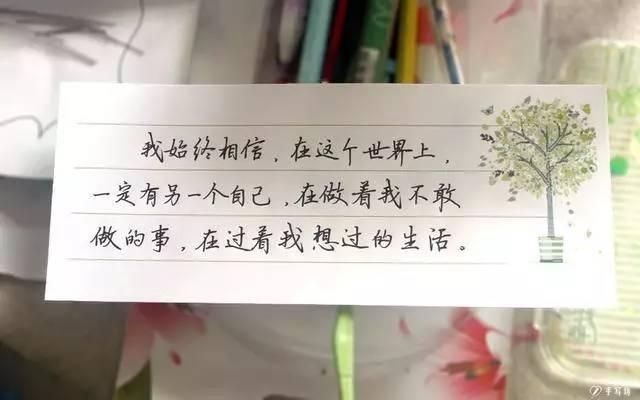 我始终相信，在这个世界上，
一定有另一个自己，在做着我不敢
做的事，在过着我想过的生活。